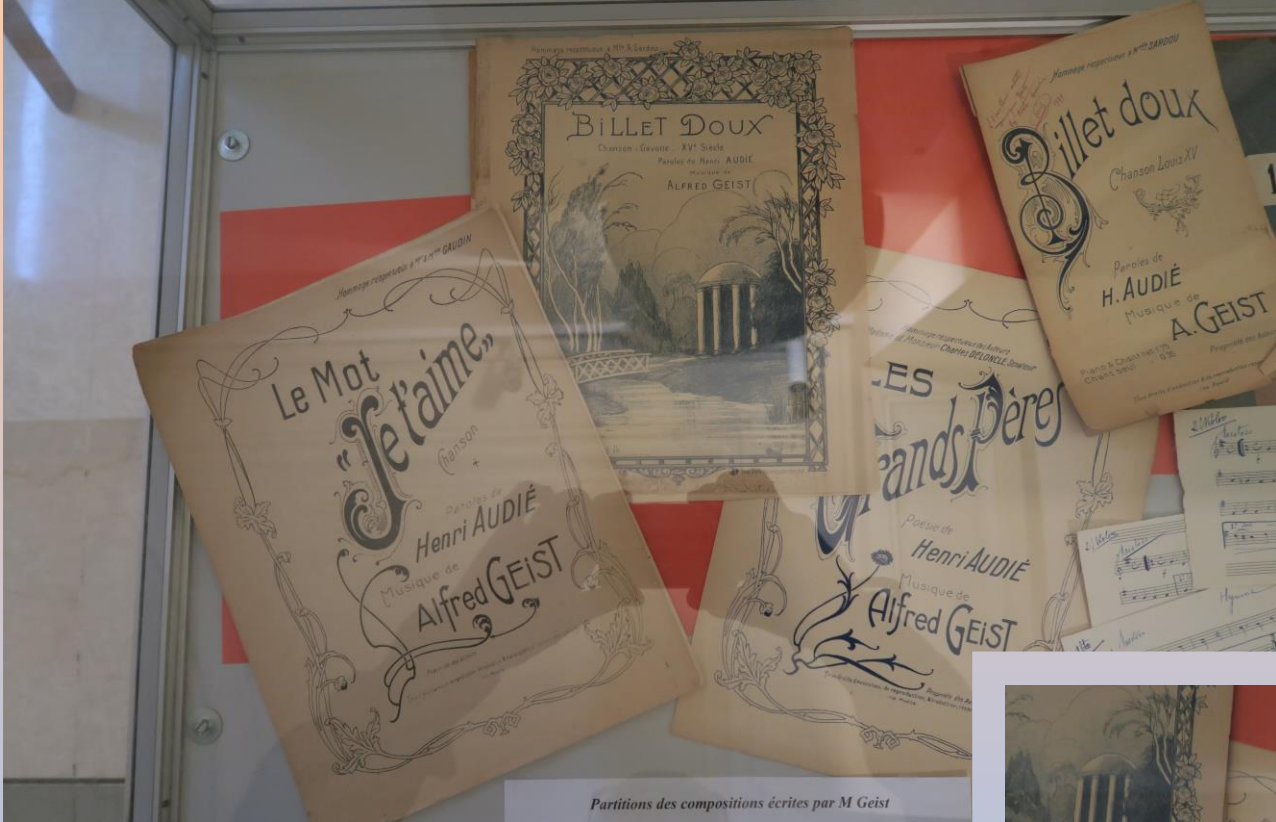 Hommage respectueux à Mme A. Sardou
BILLET DOUX
Chanson - Gavotte XVe Siècle
Paroles de Henri AUDIÉ
Musique de
ALFRED GEIST
Hommage respectueux à Mme SARDOU
Billet doux
Chanson Louis XV
Paroles de
H. AUDIÉ
Musique de
A. GEIST
Piano & Chant net: 1.75
Chant seul 0.35
Propriété des Auteurs
Hommage respectueux à Mr & Mme GAUDIN
Le Mot
"Je t'aime"
Chanson
Paroles de
Henri AUDIÉ
Musique de
Alfred GEIST
Hommage respectueux des Auteurs
Madame et Monsieur Charles DELONCLE, Sénateur
LES
Grands Pères
Poésie de
Henri AUDIÉ
Musique de
Alfred GEIST
Propriété des
2d Violon
Hymne
Partitions des compositions écrites par M Geist